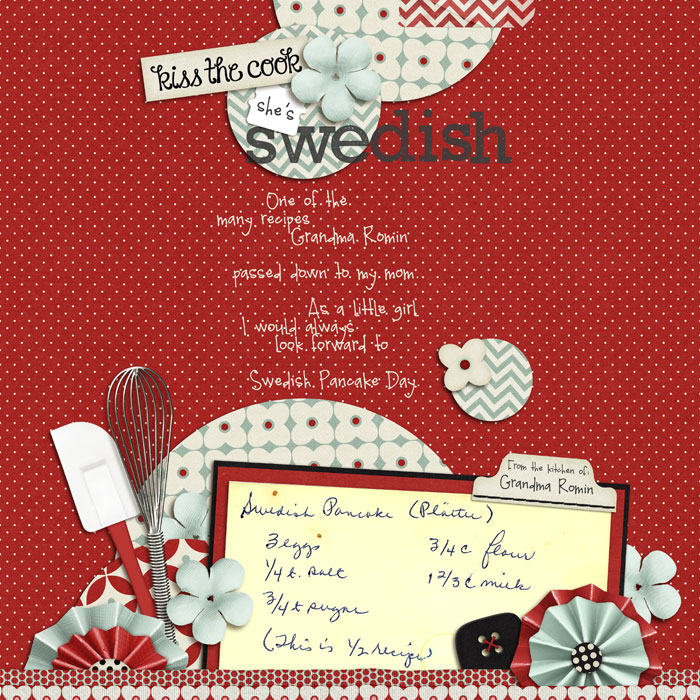 kiss the cook
she's
swedish
One of the
many recipes
Grandma Romin
passed down to my mom.
As a little girl
I would always
look forward to
Swedish Pancake Day.
From the kitchen of:
Grandma Romin
Swedish Pancake (Plätter)
3 eggs
3/4 c flour
1/4 t. salt
1 2/3 c milk
3/4 t sugar
(This is 1/2 recipe)